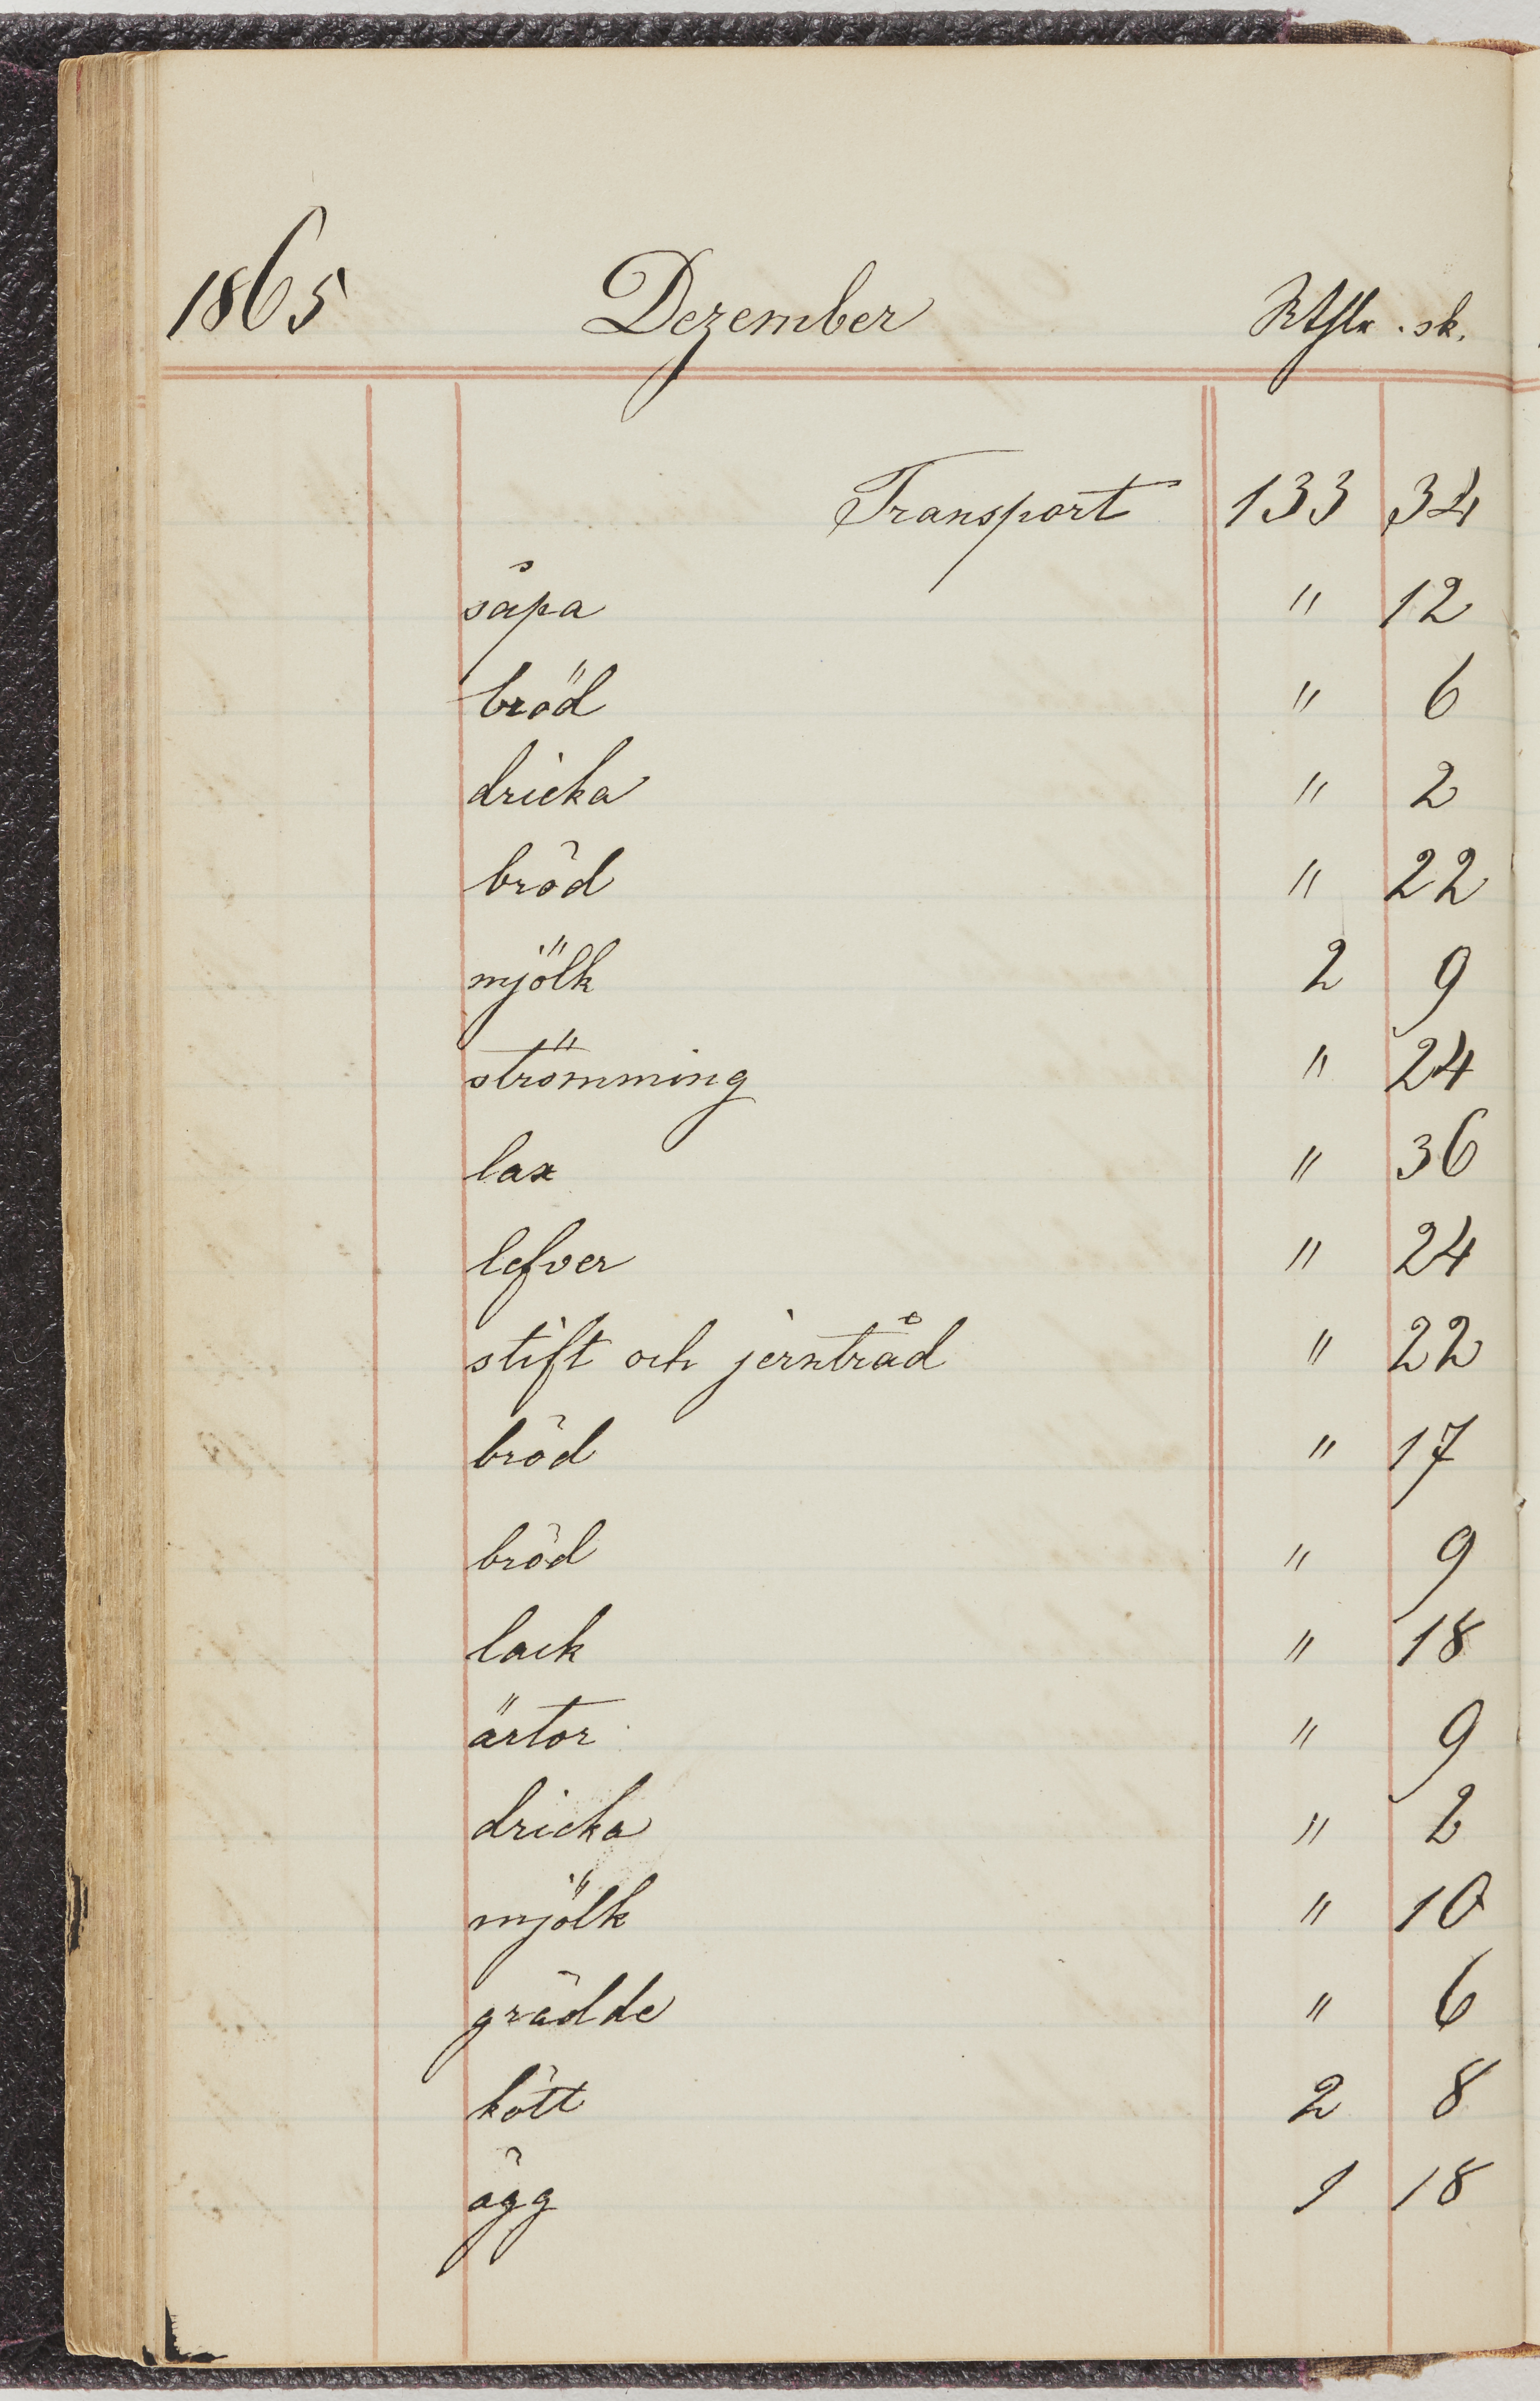 1865 Dezember Rthlr. sk.
Transport 133 34
såpa " 12
bröd " 6
dricka " 2
bröd " 22
mjölk 2 9
strömming " 24
lax " 36
lefver " 24
stift och jerntråd " 22
bröd " 17
bröd " 9
lack " 18
ärtor " 9
dricka " 2
mjölk " 10
grädde " 6
kött 2 8
ägg 1 18